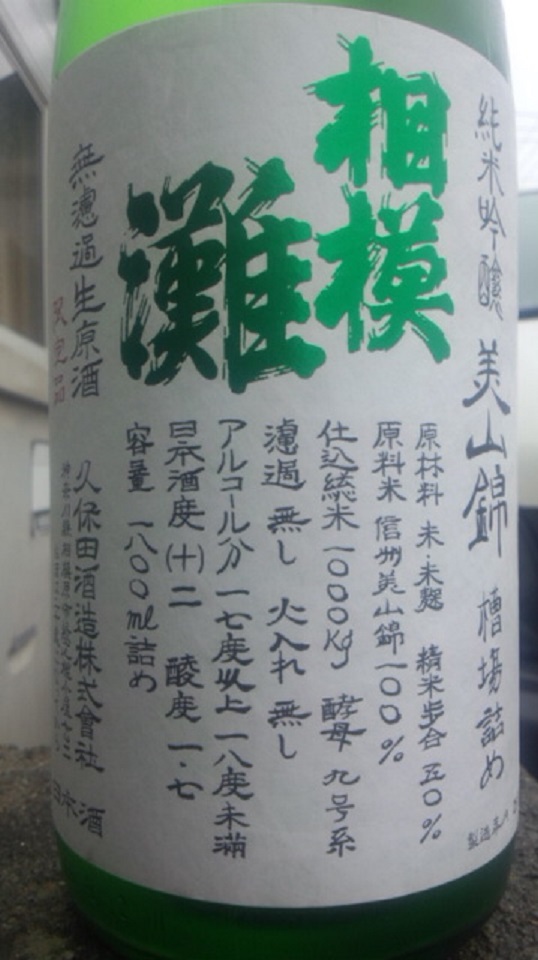 純米吟醸 美山錦 槽場詰め
製造年月
相模
灘
原材料 米・米麹 精米歩合 五〇%
原料米 信州美山錦一〇〇%
仕込総米 一〇〇〇Kg 酵母 九号系
濾過 無し 火入れ 無し
アルコール分 一七度以上一八度未満
日本酒度 (十)二 酸度 一・七
容量 一八〇〇ml詰め
無濾過生原酒
限定品
久保田酒造株式會社
日本酒